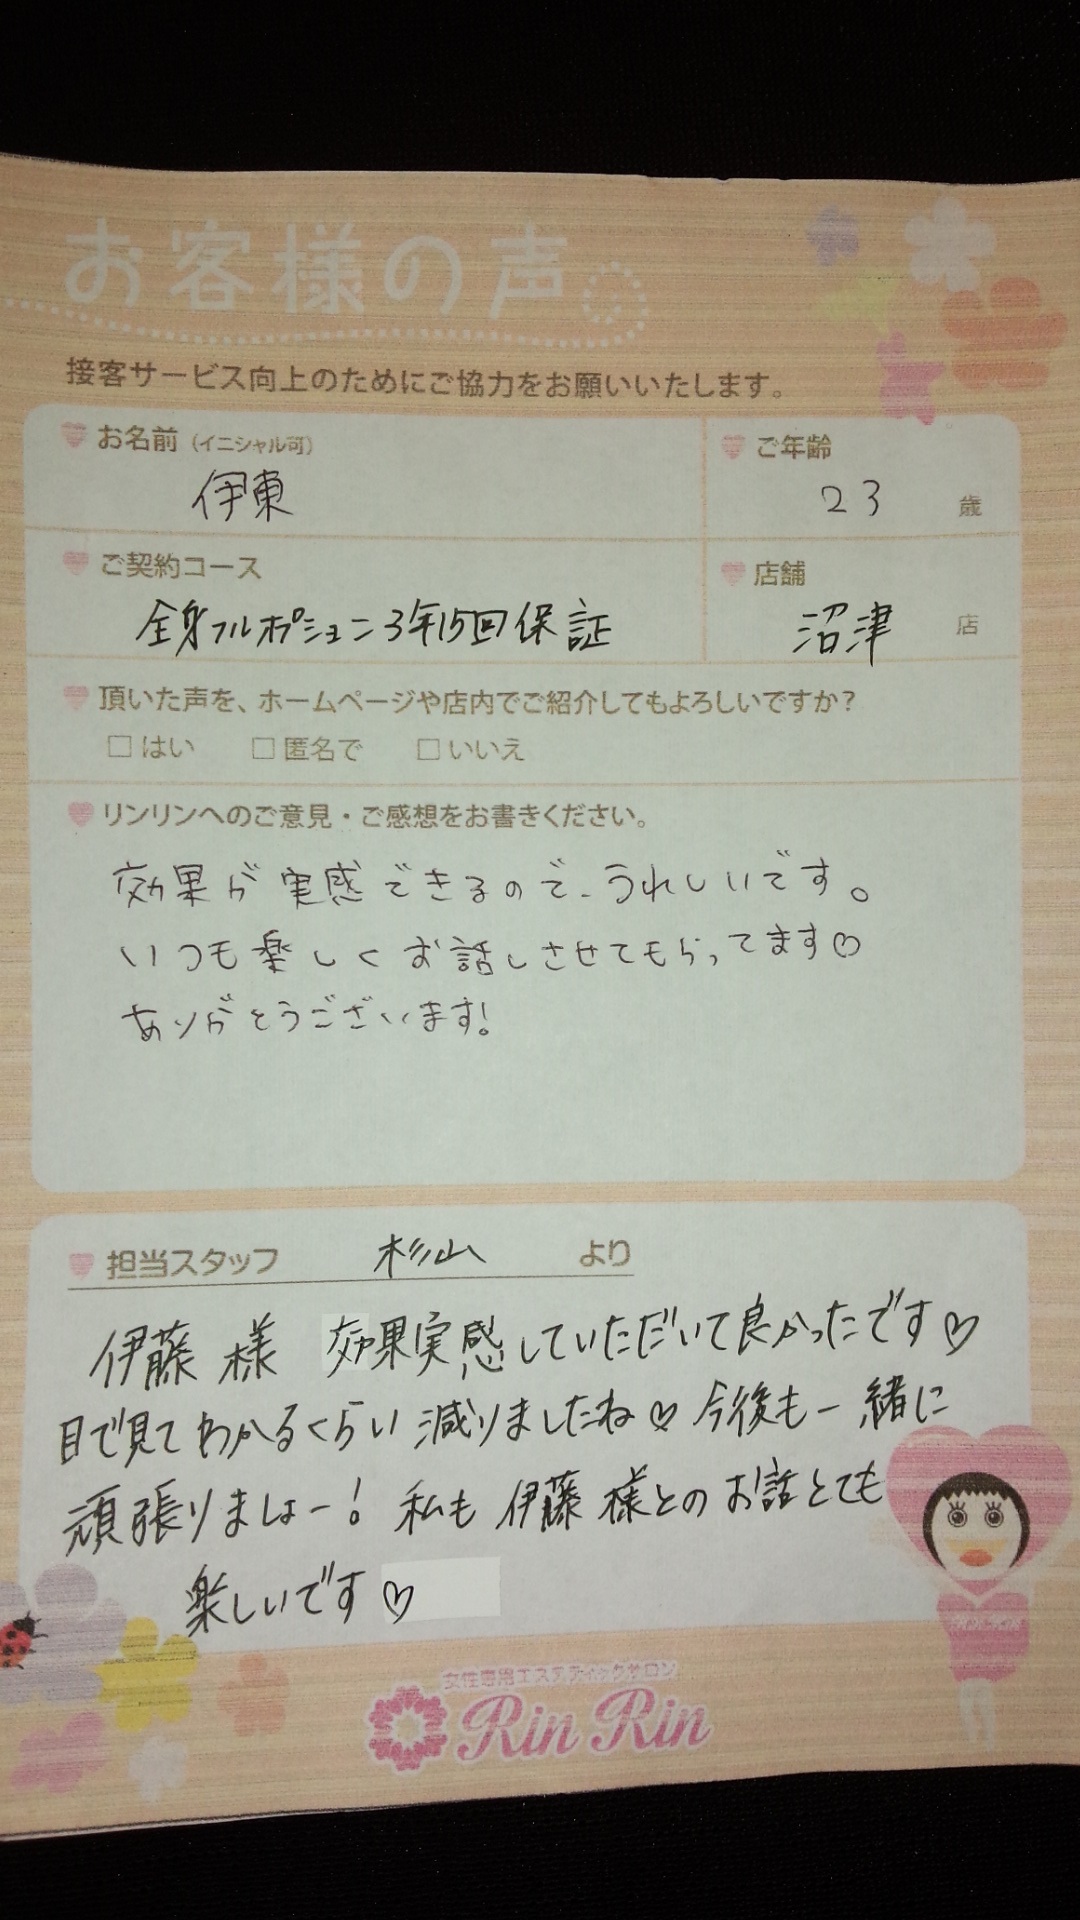 お客様の声。
接客サービス向上のためにご協力をお願いいたします。
お名前（イニシャル可）
伊東
ご年齢
23 歳
ご契約コース
全身フルオプション3年15回保証
店舗
沼津 店
頂いた声を、ホームページや店内でご紹介してもよろしいですか？
□はい □匿名で □いいえ
リンリンへのご意見・ご感想をお書きください。
効果が実感できるので、うれしいです。
いつも楽しくお話しさせてもらってます♡
ありがとうございます!
担当スタッフ 杉山 より
伊藤様 効果実感していただいて良かったです♡
目で見てわかるくらい減りましたね♡今後も一緒に
頑張りましょー! 私も伊藤様とのお話とても
楽しいです♡
女性専用エステティックサロン
Rin Rin